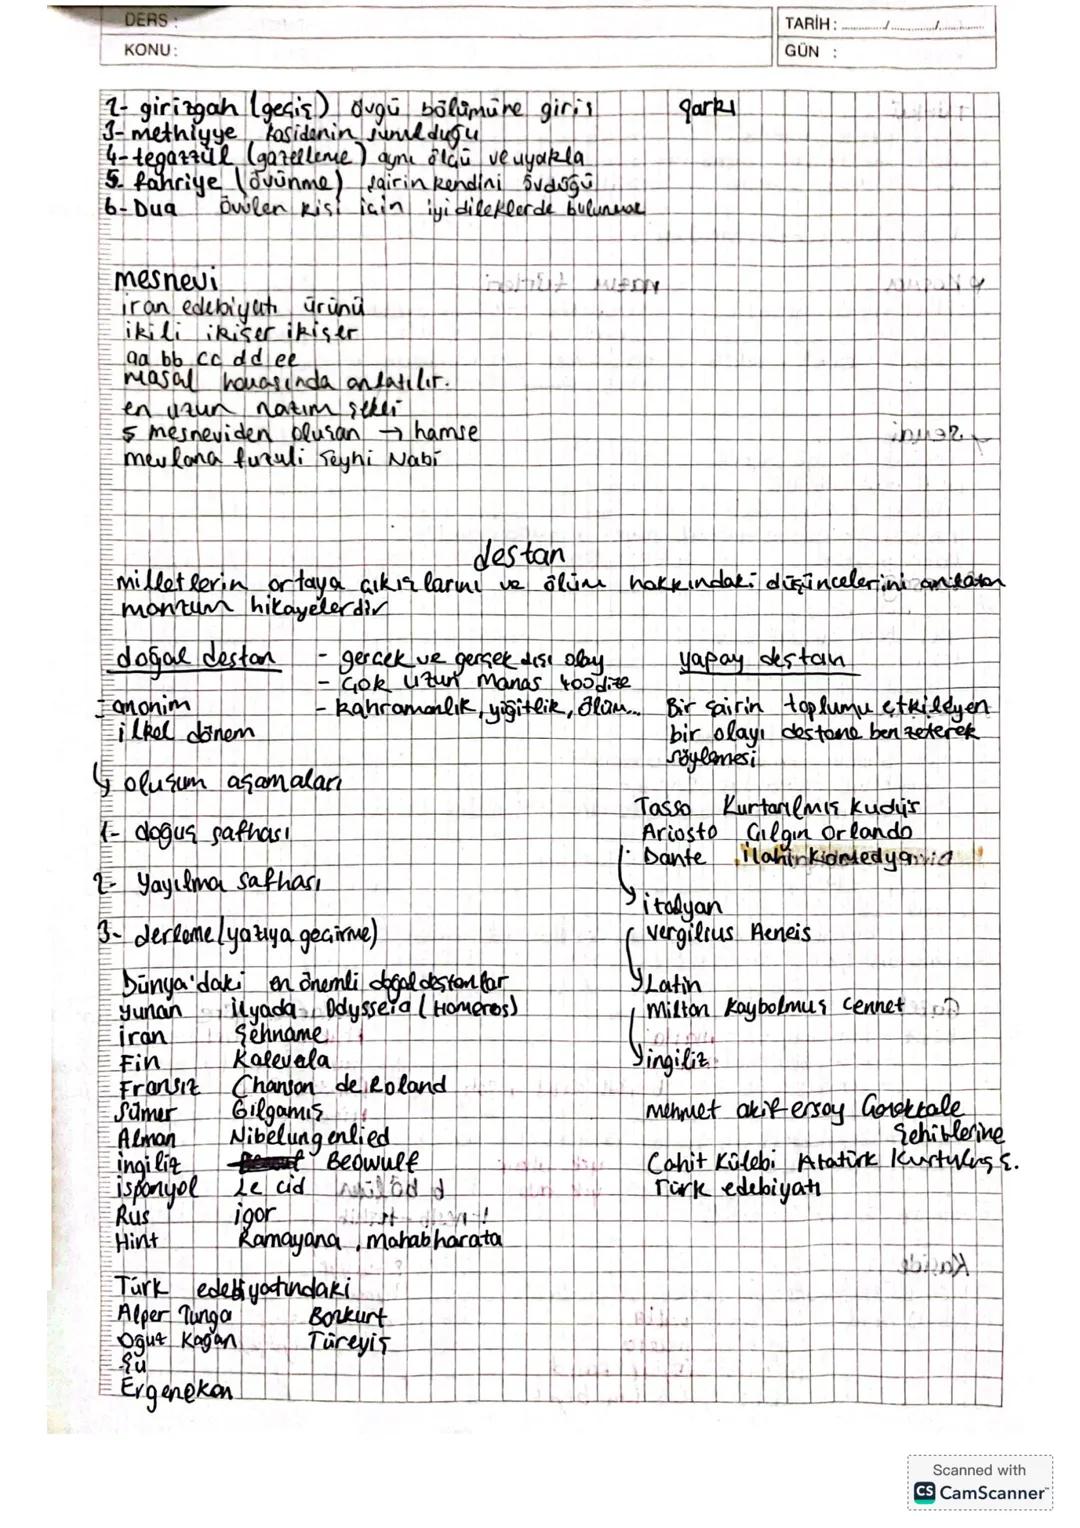 DERS :
KONU :
TARİH : ......../......../........
GÜN :
2- girizgah (geçiş) övgü bölümüne giriş
şarkı
3- methiyye kasidenin sunulduğu
4- tegazzül (gazelleme) aynı ölçü ve uyakla
5- fahriye (övünme) şairin kendini övdüğü
6- Dua övülen kişi için iyi dileklerde bulunma
mesnevi
iran edebiyatı ürünü
ikili ikişer ikişer
aa bb cc dd ee
masal havasında anlatılır.
en uzun nazım şekli
5 mesneviden oluşan → hamse
mevlana fuzuli Şeyhi Nabi
destan
milletlerin ortaya çıkışlarını ve ölüm hakkındaki düşüncelerini anlatan
manzum hikayelerdir
doğal destan
- gerçek ve gerçek dışı olay
- çok uzun Manas 400 dize
- kahramanlık, yiğitlik, ölüm...
- anonim
ilkel dönem
↳ oluşum aşamaları
1- doğuş safhası
2- Yayılma safhası
3- derleme (yazıya geçirme)
Dünya'daki en önemli doğal destanlar
Yunan İlyada Odysseia (Homeros)
iran Şehname
Fin Kalevala
Fransız Chanson de Roland
Sümer Gılgamış
Alman Nibelungenlied
ingiliz Beowulf
ispanyol Le cid
Rus igor
Hint Ramayana, mahabharata
Türk edebiyatındaki
Alper Tunga Bozkurt
Oğuz Kağan Türeyiş
Şu
Ergenekon
yapay destan
Bir şairin toplumu etkileyen
bir olayı destana benzeterek
söylemesi
Tasso Kurtarılmış Kudüs
Ariosto Çılgın Orlando
Dante ilahi Komedya
↳ italyan
Vergilius Aeneis
↳ Latin
Milton Kaybolmuş Cennet
↳ ingiliz
mehmet akif ersoy Çanakkale
Şehitlerine
Cahit Külebi Atatürk Kurtuluş S.
Türk edebiyatı
Scanned with
CS CamScanner